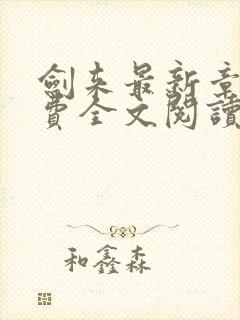 劍来最新章
費全文閱讀
和鑫森